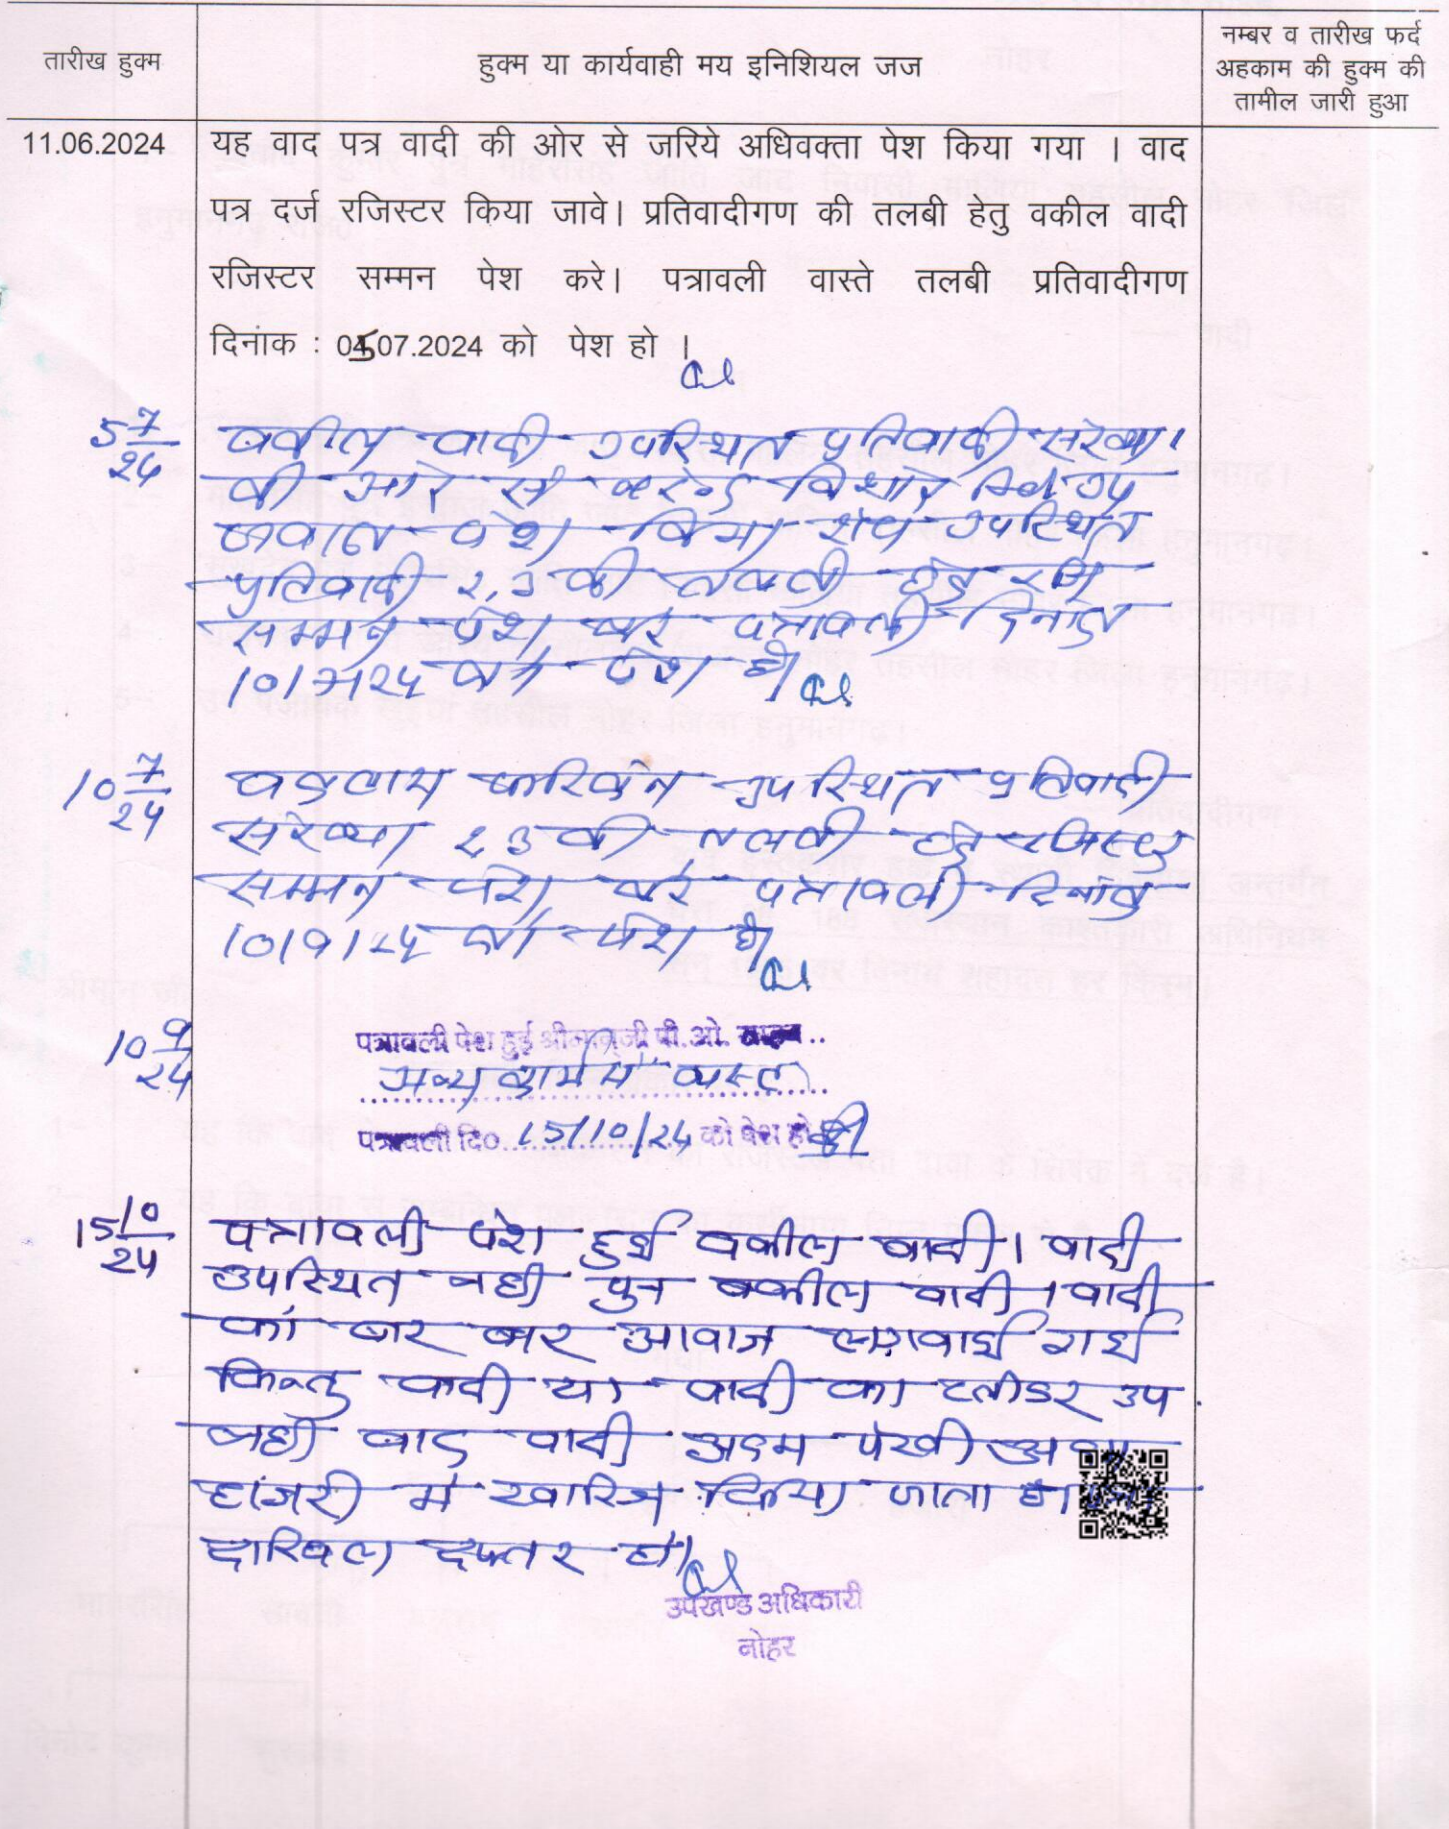 तारीख हुक्म
हुक्म या कार्यवाही मय इनिशियल जज
नम्बर व तारीख फर्द
अहकाम की हुक्म की
तामील जारी हुआ
11.06.2024
यह वाद पत्र वादी की ओर से जरिये अधिवक्ता पेश किया गया । वाद
पत्र दर्ज रजिस्टर किया जावे। प्रतिवादीगण की तलबी हेतु वकील वादी
रजिस्टर सम्मन पेश करे। पत्रावली वास्ते तलबी प्रतिवादीगण
दिनांक : 05.07.2024 को पेश हो ।
5 7/24
वकील वादी उपस्थित प्रतिवादी संख्या 1
की ओर से उप
पेश किया शेष उपस्थित
प्रतिवादी 2,3 की तलबी हेतु रजि
सम्मन पेश करे पत्रावली दिनांक
10/7/24 को पेश हो।
10 7/24
वकुलाय फरिकेन उपस्थित प्रतिवादी
संख्या 2,3 की तलबी हेतु रजिस्टर
सम्मन पेश करे पत्रावली दिनांक
10/9/24 को पेश हो।
10 9/24
पत्रावली पेश हुई श्रीमान्जी पी.ओ. साहब..
अन्य कार्य में व्यस्त
पत्रावली दि० 15/10/24 को पेश हो
15 10/24
पत्रावली पेश हुई वकील वादी। वादी
उपस्थित नही पुन वकील वादी। वादी
को बार बार आवाज लगवाई गई
किन्तु वादी या वादी का प्लीडर उप.
नही वाद वादी अदम पेरवी अदम
हाजरी मे खारिज किया जाता है।
दाखिल दफ्तर हो।
उपखण्ड अधिकारी
नोहर